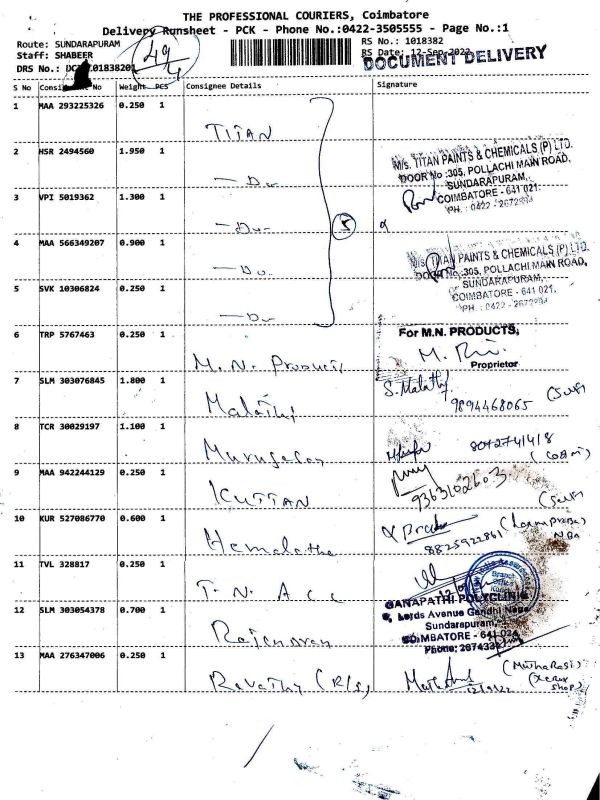 THE PROFESSIONAL COURIERS, Coimbatore
Delivery Runsheet - PCK - Phone No.:0422-3505555 - Page No.:1
Route: SUNDARAPURAM
RS No.: 1018382
Staff: SHABEER
49/4
RS Date: 12-Sep-2022
DOCUMENT DELIVERY
DRS No.:
S No Weight PCS Consignee Details Signature
1 MAA 293225326 0.250 1 TITAN
2 HSR 2494560 1.950 1 — Do
M/s. TITAN PAINTS & CHEMICALS (P) LTD.
DOOR No :305, POLLACHI MAIN ROAD,
SUNDARAPURAM,
COIMBATORE - 641 021.
PH. : 0422 - 2672994
3 VPI 5019362 1.300 1 — Do
5
4 MAA 566349207 0.900 1 — Do
M/s. TITAN PAINTS & CHEMICALS (P) LTD.
DOOR No :305, POLLACHI MAIN ROAD,
SUNDARAPURAM,
COIMBATORE - 641 021.
PH. : 0422 - 2672994
5 SVK 10306824 0.250 1 — Do
6 TRP 5767463 0.250 1 M. N. Products
For M.N. PRODUCTS,
Proprietor
7 SLM 303076845 1.800 1 Malathy
S. Malathy
9894468065 (Self)
8 TCR 30029197 1.100 1 Murugesan
8072741418
9 MAA 942244129 0.250 1 KUTTAN
9363102603
(Self)
10 KUR 527086770 0.600 1 Hemalatha
8825922861
11 TVL 328817 0.250 1 T. N. A C C
Branch Office
GANAPATHI POLYCLINIC
6, Lords Avenue Gandhi Nagar
Sundarapuram,
COIMBATORE - 641 024
12 SLM 303054378 0.700 1 Rajendran
13 MAA 276347006 0.250 1 Revathy (R/S)
(Mutharasi)
(Xerox shop)
12/9/22